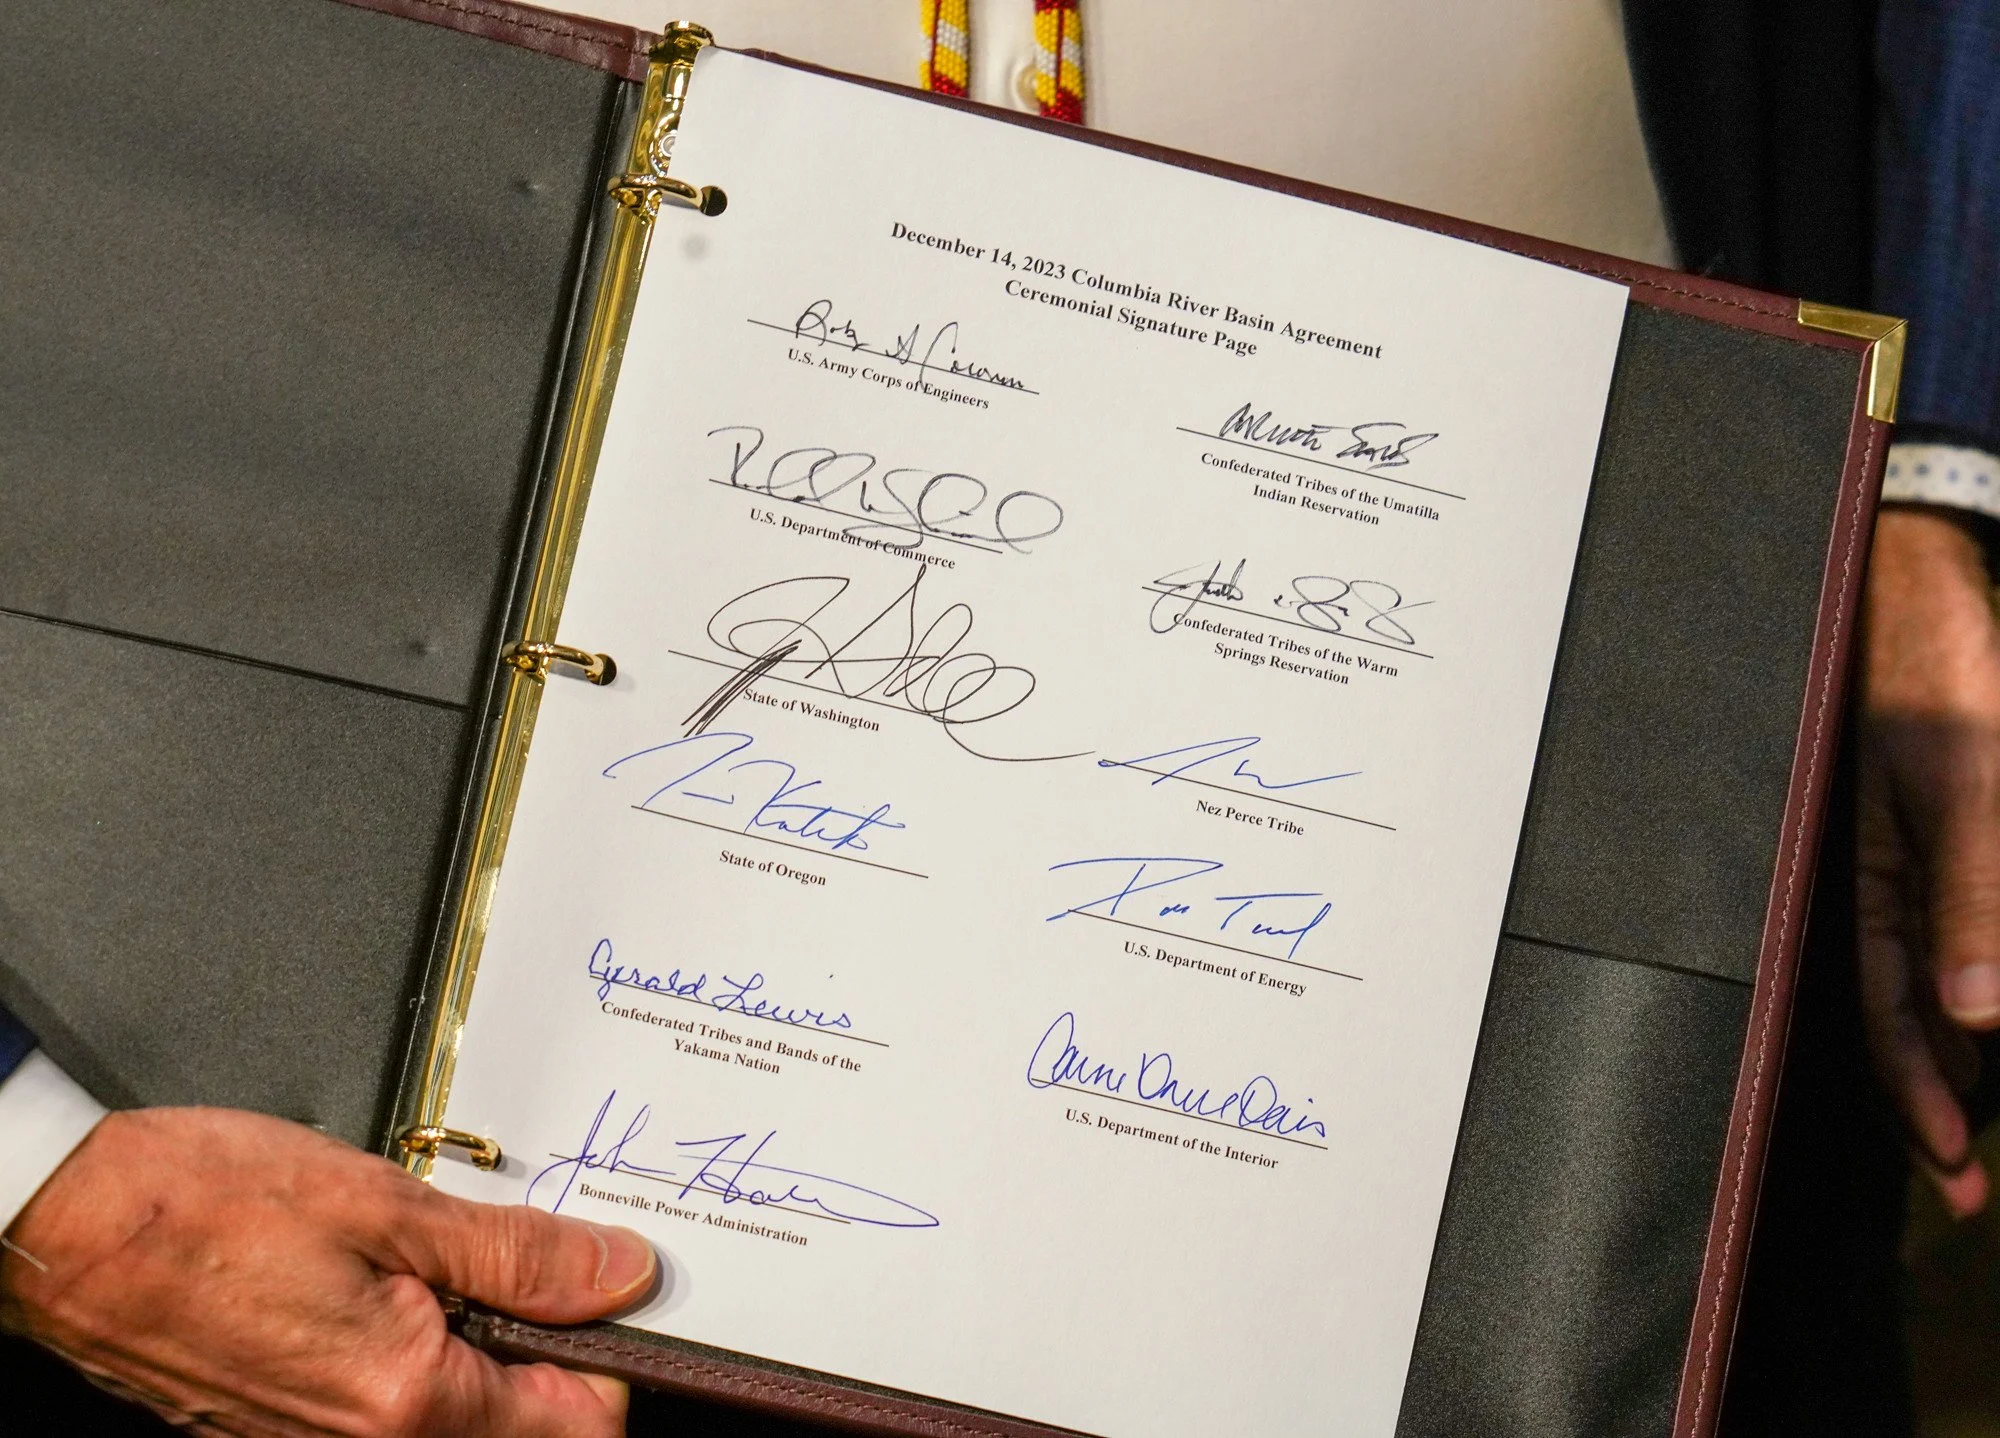 December 14, 2023 Columbia River Basin Agreement
Ceremonial Signature Page
U.S. Army Corps of Engineers
U.S. Department of Commerce
State of Washington
State of Oregon
Gerald Lewis
Confederated Tribes and Bands of the
Yakama Nation
John
Bonneville Power Administration
Confederated Tribes of the Umatilla
Indian Reservation
Confederated Tribes of the Warm
Springs Reservation
Nez Perce Tribe
U.S. Department of Energy
U.S. Department of the Interior